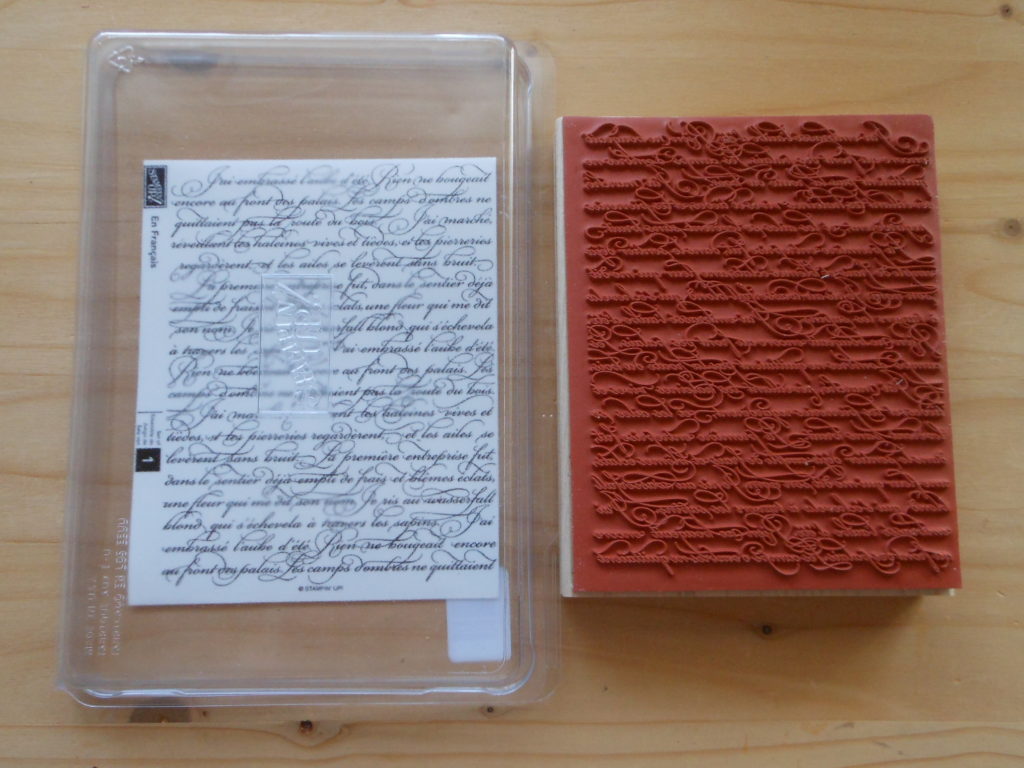 STAMPIN' UP!
En Français
J'ai embrassé l'aube d'été. Rien ne bougeait
encore au front des palais. Les camps d'ombres ne
quittaient pas la route du bois. J'ai marché,
réveillant les haleines vives et tièdes, et les pierreries
regardèrent, et les ailes se levèrent sans bruit.
La première fut, dans le sentier déjà
empli de frais éclats, une fleur qui me dit
son nom. Je blond qui s'échevela
à travers les J'ai embrassé l'aube d'été.
Rien ne au front des palais. Les
camps d'ombres ne quittaient pas la route du bois.
J'ai les haleines vives et
tièdes, et les pierreries regardèrent, et les ailes se
levèrent sans bruit. La première entreprise fut,
dans le sentier déjà empli de frais et blêmes éclats,
une fleur qui me dit son nom. Je ris au wasserfall
blond, qui s'échevela à travers les sapins. J'ai
embrassé l'aube d'été. Rien ne bougeait encore
au front des palais. Les camps d'ombres ne quittaient
© STAMPIN' UP!
1